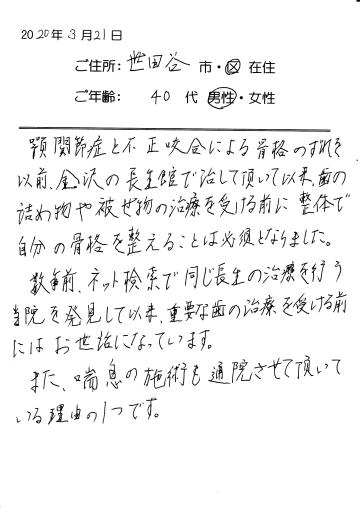 2020年3月21日
ご住所: 世田谷 市・区 在住
ご年齢: 40 代 男性・女性
顎関節症と不正咬合による骨格のずれを
以前、金沢の長生館で治して頂いて以来、歯の
詰め物や被せ物の治療を受ける前に整体で
自分の骨格を整えることは必須となりました。
数年前、ネット検索で同じ長生の治療を行う
当院を発見して以来、重要な歯の治療を受ける前
にはお世話になっています。
また、喘息の施術も通院させて頂いて
いる理由の1つです。